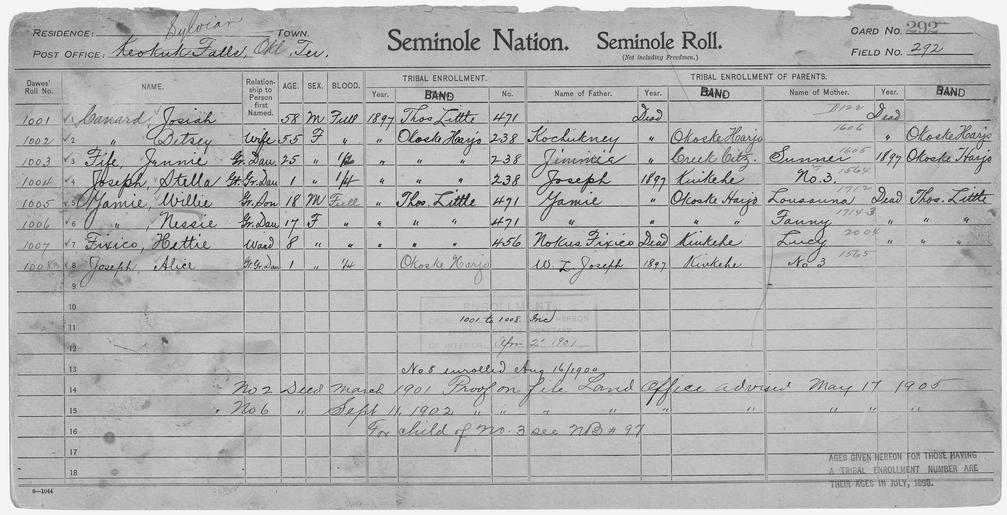 RESIDENCE: Sylvian TOWN.
POST OFFICE: Keokuk Falls, Okl. Ter.
Seminole Nation. Seminole Roll.
(Not including Freedmen.)
CARD NO. 292
FIELD NO. 292
Dawes' Roll No. NAME. Relationship to Person first Named. AGE. SEX. BLOOD. TRIBAL ENROLLMENT. TRIBAL ENROLLMENT OF PARENTS.
Year. BAND No. Name of Father. Year. BAND Name of Mother. Year. BAND
1001 1 Canard Josiah 58 M Full 1897 Thos Little 471 Dead 1122 Dead
1002 2 " Betsey Wife 55 F " " Okoske Harjo 238 Kochukney " Okoske Harjo 1606 " Okoske Harjo
1003 3 Fife, Jennie Gr. Dau 25 " 1/2 " " " 238 Jimmie " Creek Citz. Sumner 1605 1897 Okoske Harjo
1004 4 Joseph, Stella Gt. Gr. Dau 1 " 1/4 238 Joseph 1897 Kinkehe No. 3. 1564
1005 5 Yamie, Willie Gr. Son 18 M Full Thos. Little 471 Yamie " Okoske Harjo Lousanna 1712 Dead Thos. Little
1006 6 " Nessie Gr. Dau 17 F " " " " 471 " " " " Fanny 1714-3 " " "
1007 7 Fixico, Hettie Ward 8 " " " " " 456 Nokus Fixico Dead Kinkehe Lucy 2004 " " "
1008 8 Joseph, Alice Gt. Gr. Dau 1 " 1/4 Okoske Harjo W. L. Joseph 1897 Kinkehe No 3 1565
9
10
ENROLLMENT
11 1001 to 1008. Inc HEREON
OF INTERIOR Apr. 2" 1901
12
13 No 8 enrolled Aug 16/1900
14 No 2 Died March 1901 Proof on file Land Office advised May 17 1905
15 " No 6 " Sept 11, 1902 " " " " " " " " "
16 For child of No. 3 see NB # 97
17
18
AGES GIVEN HEREON FOR THOSE HAVING
A TRIBAL ENROLLMENT NUMBER ARE
THEIR AGES IN JULY, 1898.
6—1044